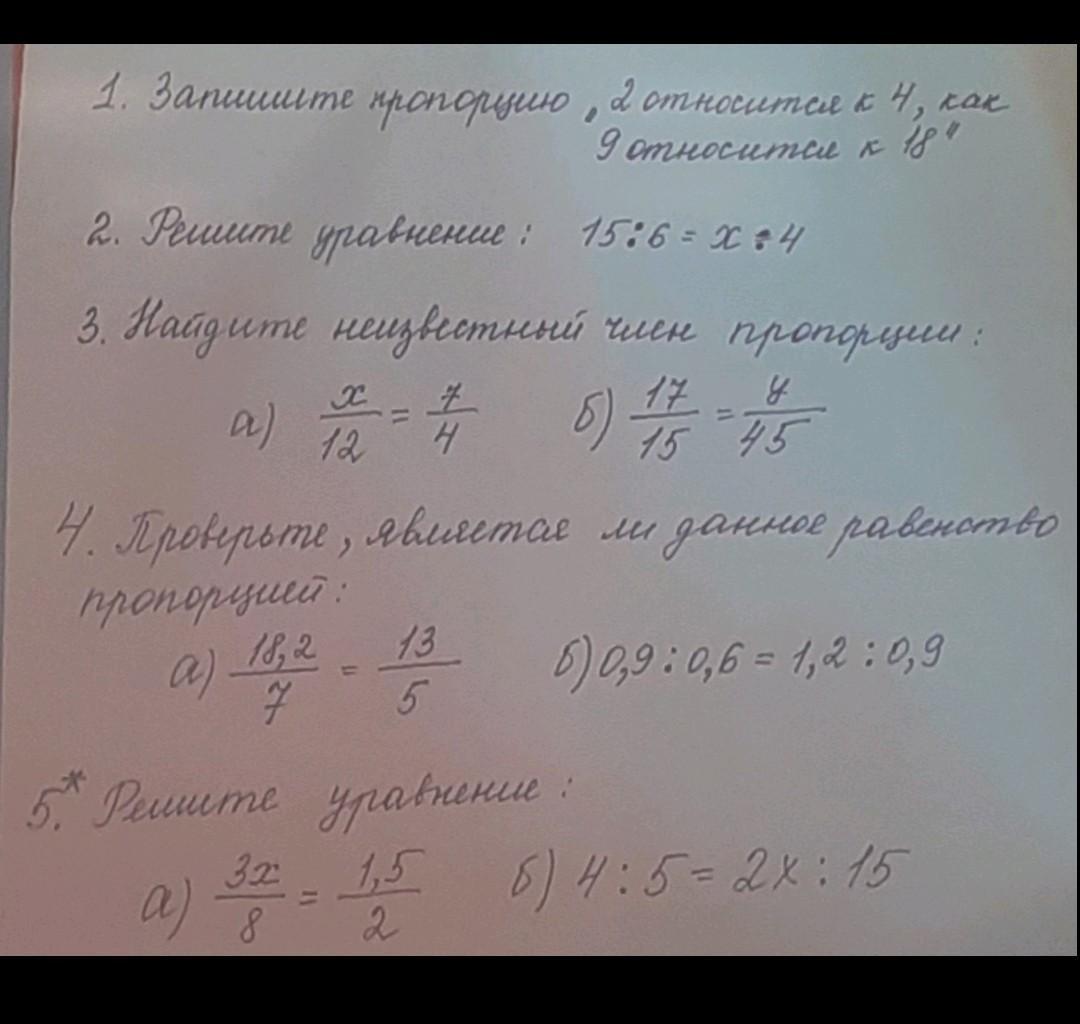 1. Запишите пропорцию „2 относится к 4, как
9 относится к 18"
2. Решите уравнение: 15:6 = x:4
3. Найдите неизвестный член пропорции:
а) x/12 = 7/4 б) 17/15 = y/45
4. Проверьте, является ли данное равенство
пропорцией:
а) 18,2/7 = 13/5 б) 0,9:0,6 = 1,2:0,9
5.* Решите уравнение:
а) 3x/8 = 1,5/2 б) 4:5 = 2x:15